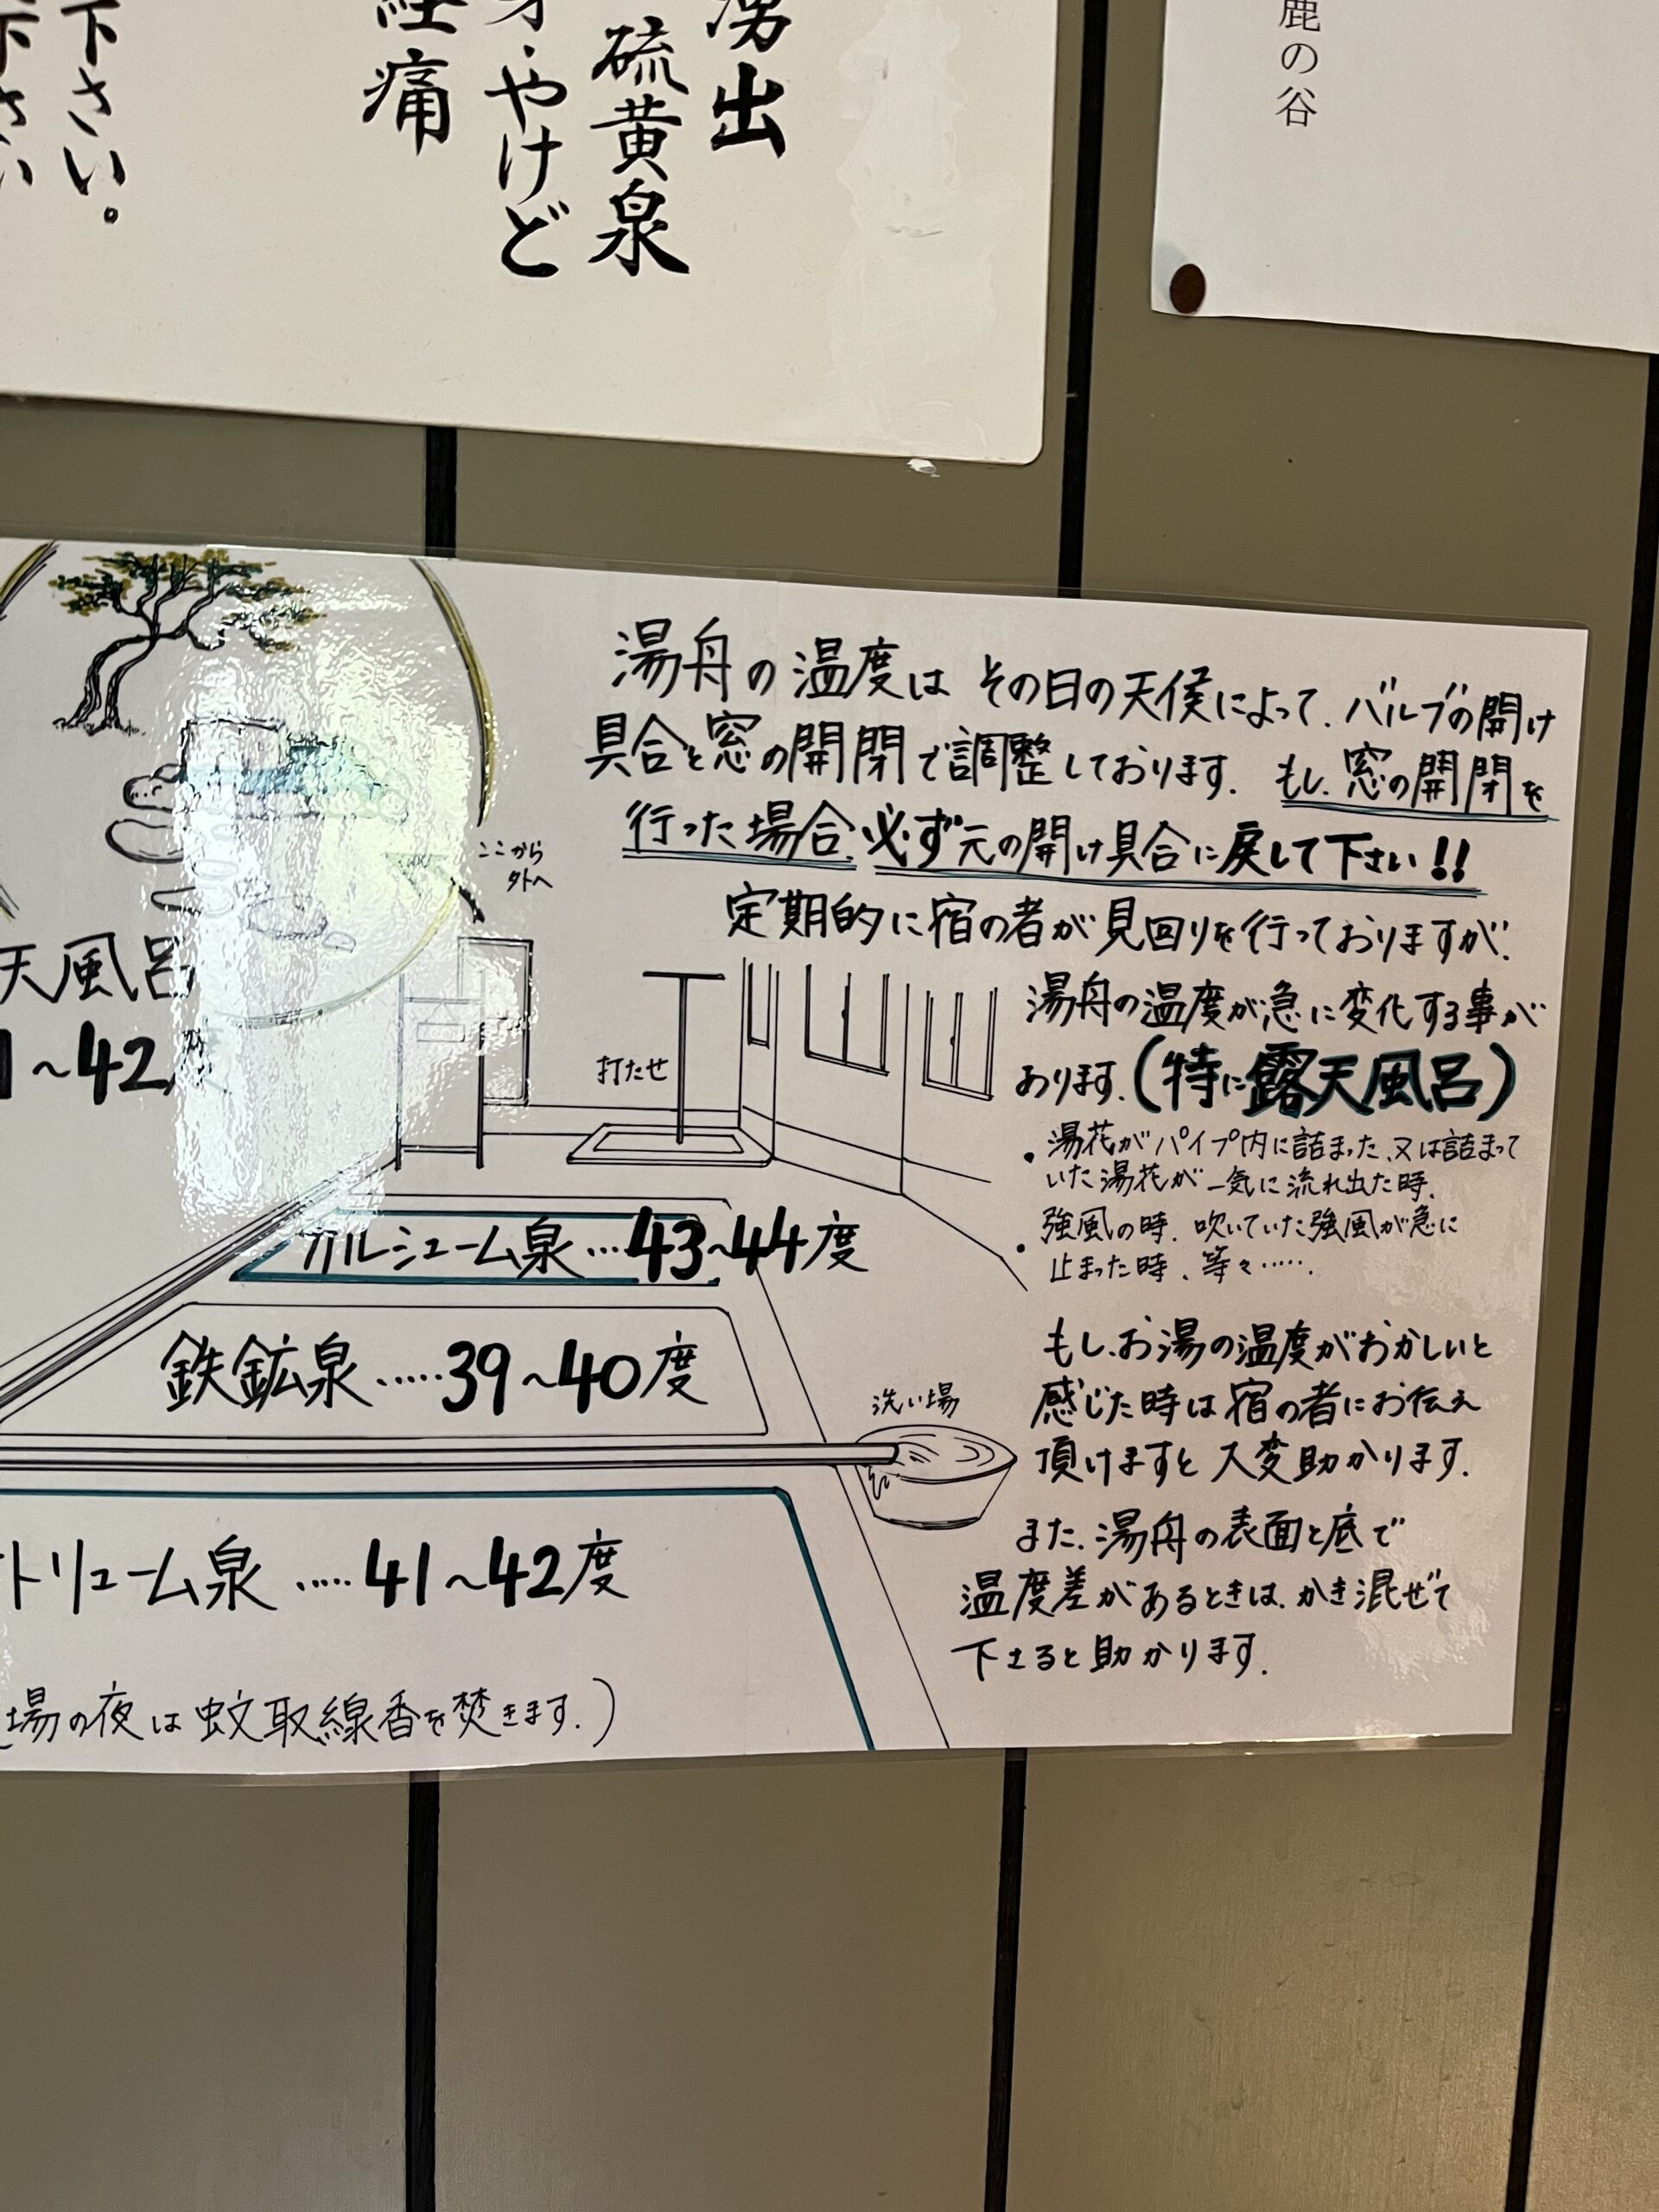 鹿の谷
湧出
硫黄泉
・やけど
痛
下さい。
下さい
湯舟の温度は その日の天候によって、バルブの開け
具合と窓の開閉で調整しております。もし、窓の開閉を
行った場合、必ず元の開け具合に戻して下さい!!
定期的に宿の者が見回りを行っておりますが、
湯舟の温度が急に変化する事が
あります。(特に露天風呂)
・湯花がパイプ内に詰まった、又は詰まって
いた湯花が一気に流れ出た時。
・強風の時、吹いていた強風が急に
止まった時、等々……。
もし、お湯の温度がおかしいと
感じた時は宿の者にお伝え
頂けますと大変助かります。
また、湯舟の表面と底で
温度差があるときは、かき混ぜて
下さると助かります。
ここから
外へ
天風呂
1~42
打たせ
カルシューム泉…43~44度
鉄鉱泉……39~40度
洗い場
トリューム泉……41~42度
場の夜は蚊取線香を焚きます。)